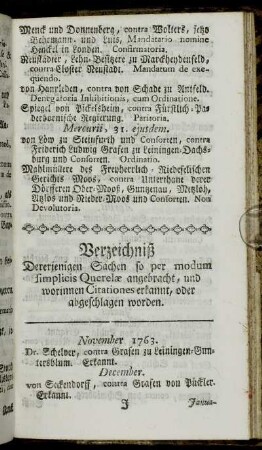 Menck und Donnenberg, contra Wolters, jetzo
Böhemann. und Luis, Mandatario nomine
Henckel in Londen. Confirmatoria.
Neustädter, Lehn-Besitzere zu Marckheydenfeld,
contra Closter Neustadt. Mandatum de exe-
quendo.
von Hanxleden, contra von Schade zu Antfeld.
Denegatoria Inhibitionis, cum Ordinatione.
Spiegel von Pickelsheim, contra Fürstlich-Pa-
derbornische Regierung. Paritoria.
Mercurii, 31. ejusdem.
von Löw zu Steinfurth und Consorten, contra
Friderich Ludwig Grafen zu Leiningen-Dachs-
burg und Consorten. Ordinatio.
Mahlmüllere des Freyherrlich-Riedeselischen
Gerichts Moos, contra Unterthane derer
Dörfferen Ober-Mooß, Guntzenau, Metzloß,
und Nieder-Moos und Consorten. Non
Devolutoria.
Verzeichniß
Dererjenigen Sachen so per modum
simplicis Querelæ angebracht, und
worinnen Citationes erkannt, oder
abgeschlagen worden.
November 1763.
Dr. Schelver, contra Grafen zu Leiningen-Gun-
tersblum. Erkannt.
December.
von Seckendorff, contra Grafen von Pückler.
Erkannt.
J Janua-